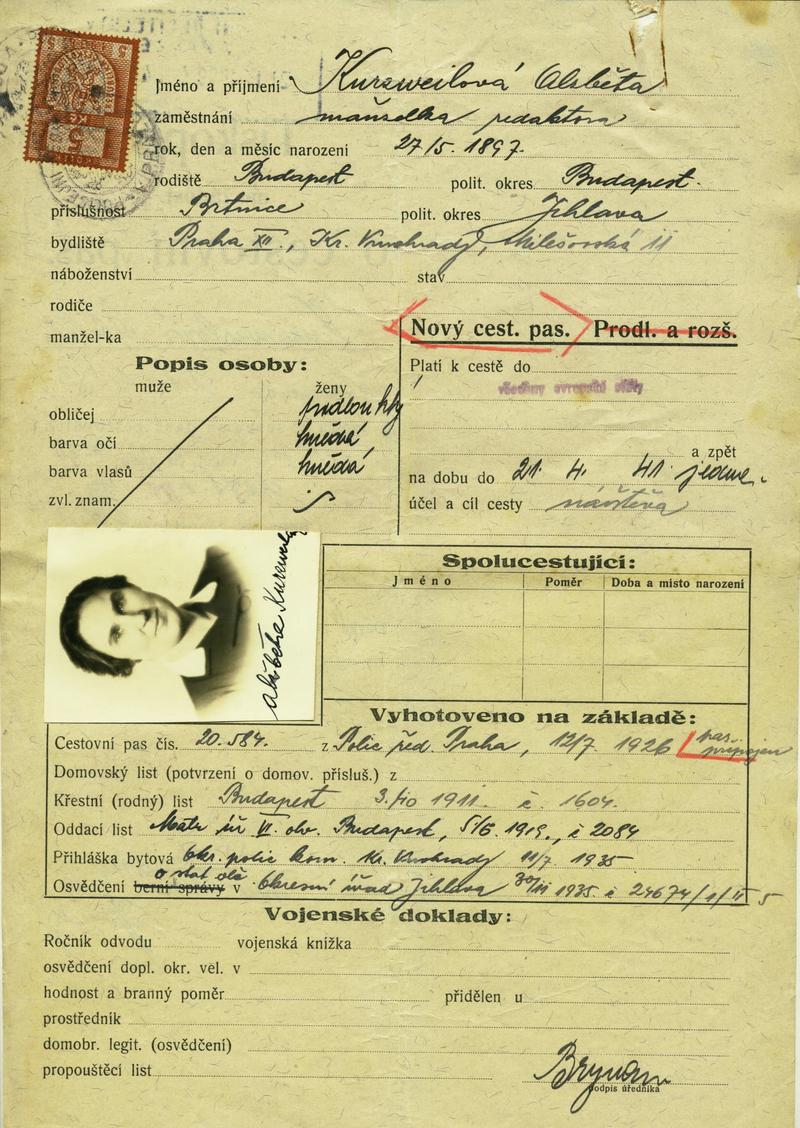 Jméno a příjmení Kurzweilová Alžběta
zaměstnání manželka redaktora
rok, den a měsíc narození 27/5. 1897.
rodiště Budapest polit. okres Budapest.
příslušnost Brtnice polit. okres Jihlava
bydliště Praha XII., Kr. Vinohrady, Milešovská 11
náboženství stav
rodiče
manžel-ka
Nový cest. pas. Prodl. a rozš.
Popis osoby:
muže ženy
obličej podlouhlý
barva očí hnědá
barva vlasů hnědá
zvl. znam.
Platí k cestě do
všechny evropské státy
a zpět
na dobu do 21. 4. 41 jedine.
účel a cíl cesty návštěva
Alžběta Kurzweilová
Spolucestující:
Jméno Poměr Doba a místo narození
Vyhotoveno na základě:
Cestovní pas čís. 20.584. z Polic řed. Praha, 12/7. 1926 pas připojen
Domovský list (potvrzení o domov. přísluš.) z
Křestní (rodný) list Budapest 3./10 1911. č. 1604.
Oddací list Matr úř VI. obv. Budapest, 5/6. 1919., č 2084
Přihláška bytová Okr. polic kom. Kr. Vinohrady 11/7 1935
o stát obč
Osvědčení berní správy v Okresní úřad Jihlava 1935. č 24674/1/II 5
Vojenské doklady:
Ročník odvodu vojenská knížka
osvědčení dopl. okr. vel. v
hodnost a branný poměr přidělen u
prostředník
domobr. legit. (osvědčení)
propouštěcí list
podpis úředníka